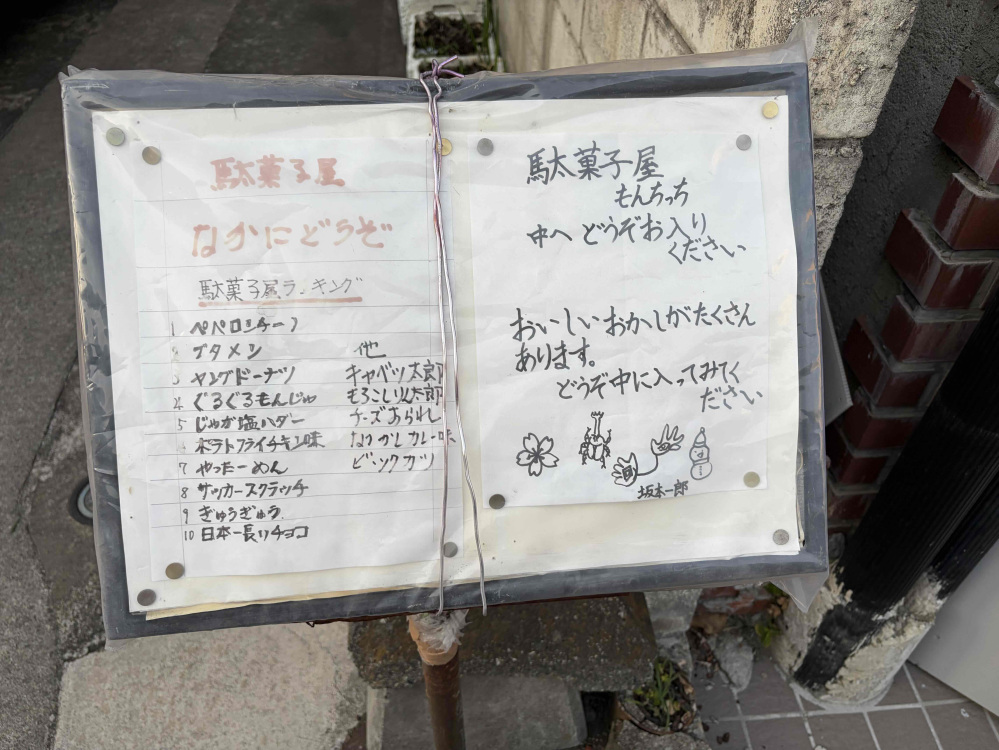 駄菓子屋
なかにどうぞ
駄菓子屋ランキング
1 ペペロンチーノ
2 ブタメン
3 ヤングドーナツ
4 ぐるぐるもんじゃ
5 じゃが塩バター
6 ポテトフライチキン味
7 やったーめん
8 サッカースクラッチ
9 ぎゅうぎゅう
10 日本一長いチョコ
他
キャベツ太郎
もろこし輪太郎
チーズあられ
カレー味
ビックカツ
駄菓子屋
もんちっち
中へどうぞお入り
ください
おいしいおかしがたくさん
あります。
どうぞ中に入ってみてく
ださい
坂本一郎